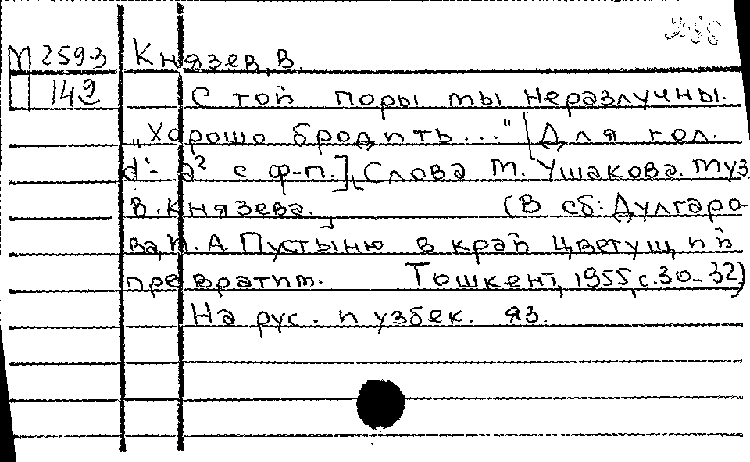 М 259-3 Князев, В.
142 С той поры мы неразлучны.
"Хорошо бродить..." [Для гол.
d¹- a² с ф-п.], Слова М. Ушакова. Муз
В. Князева. (В сб: Дулгаро
ва, Н. А Пустыню в край цветущий
превратим. Тошкент, 1955, с. 30-32)
На рус. и узбек. яз.